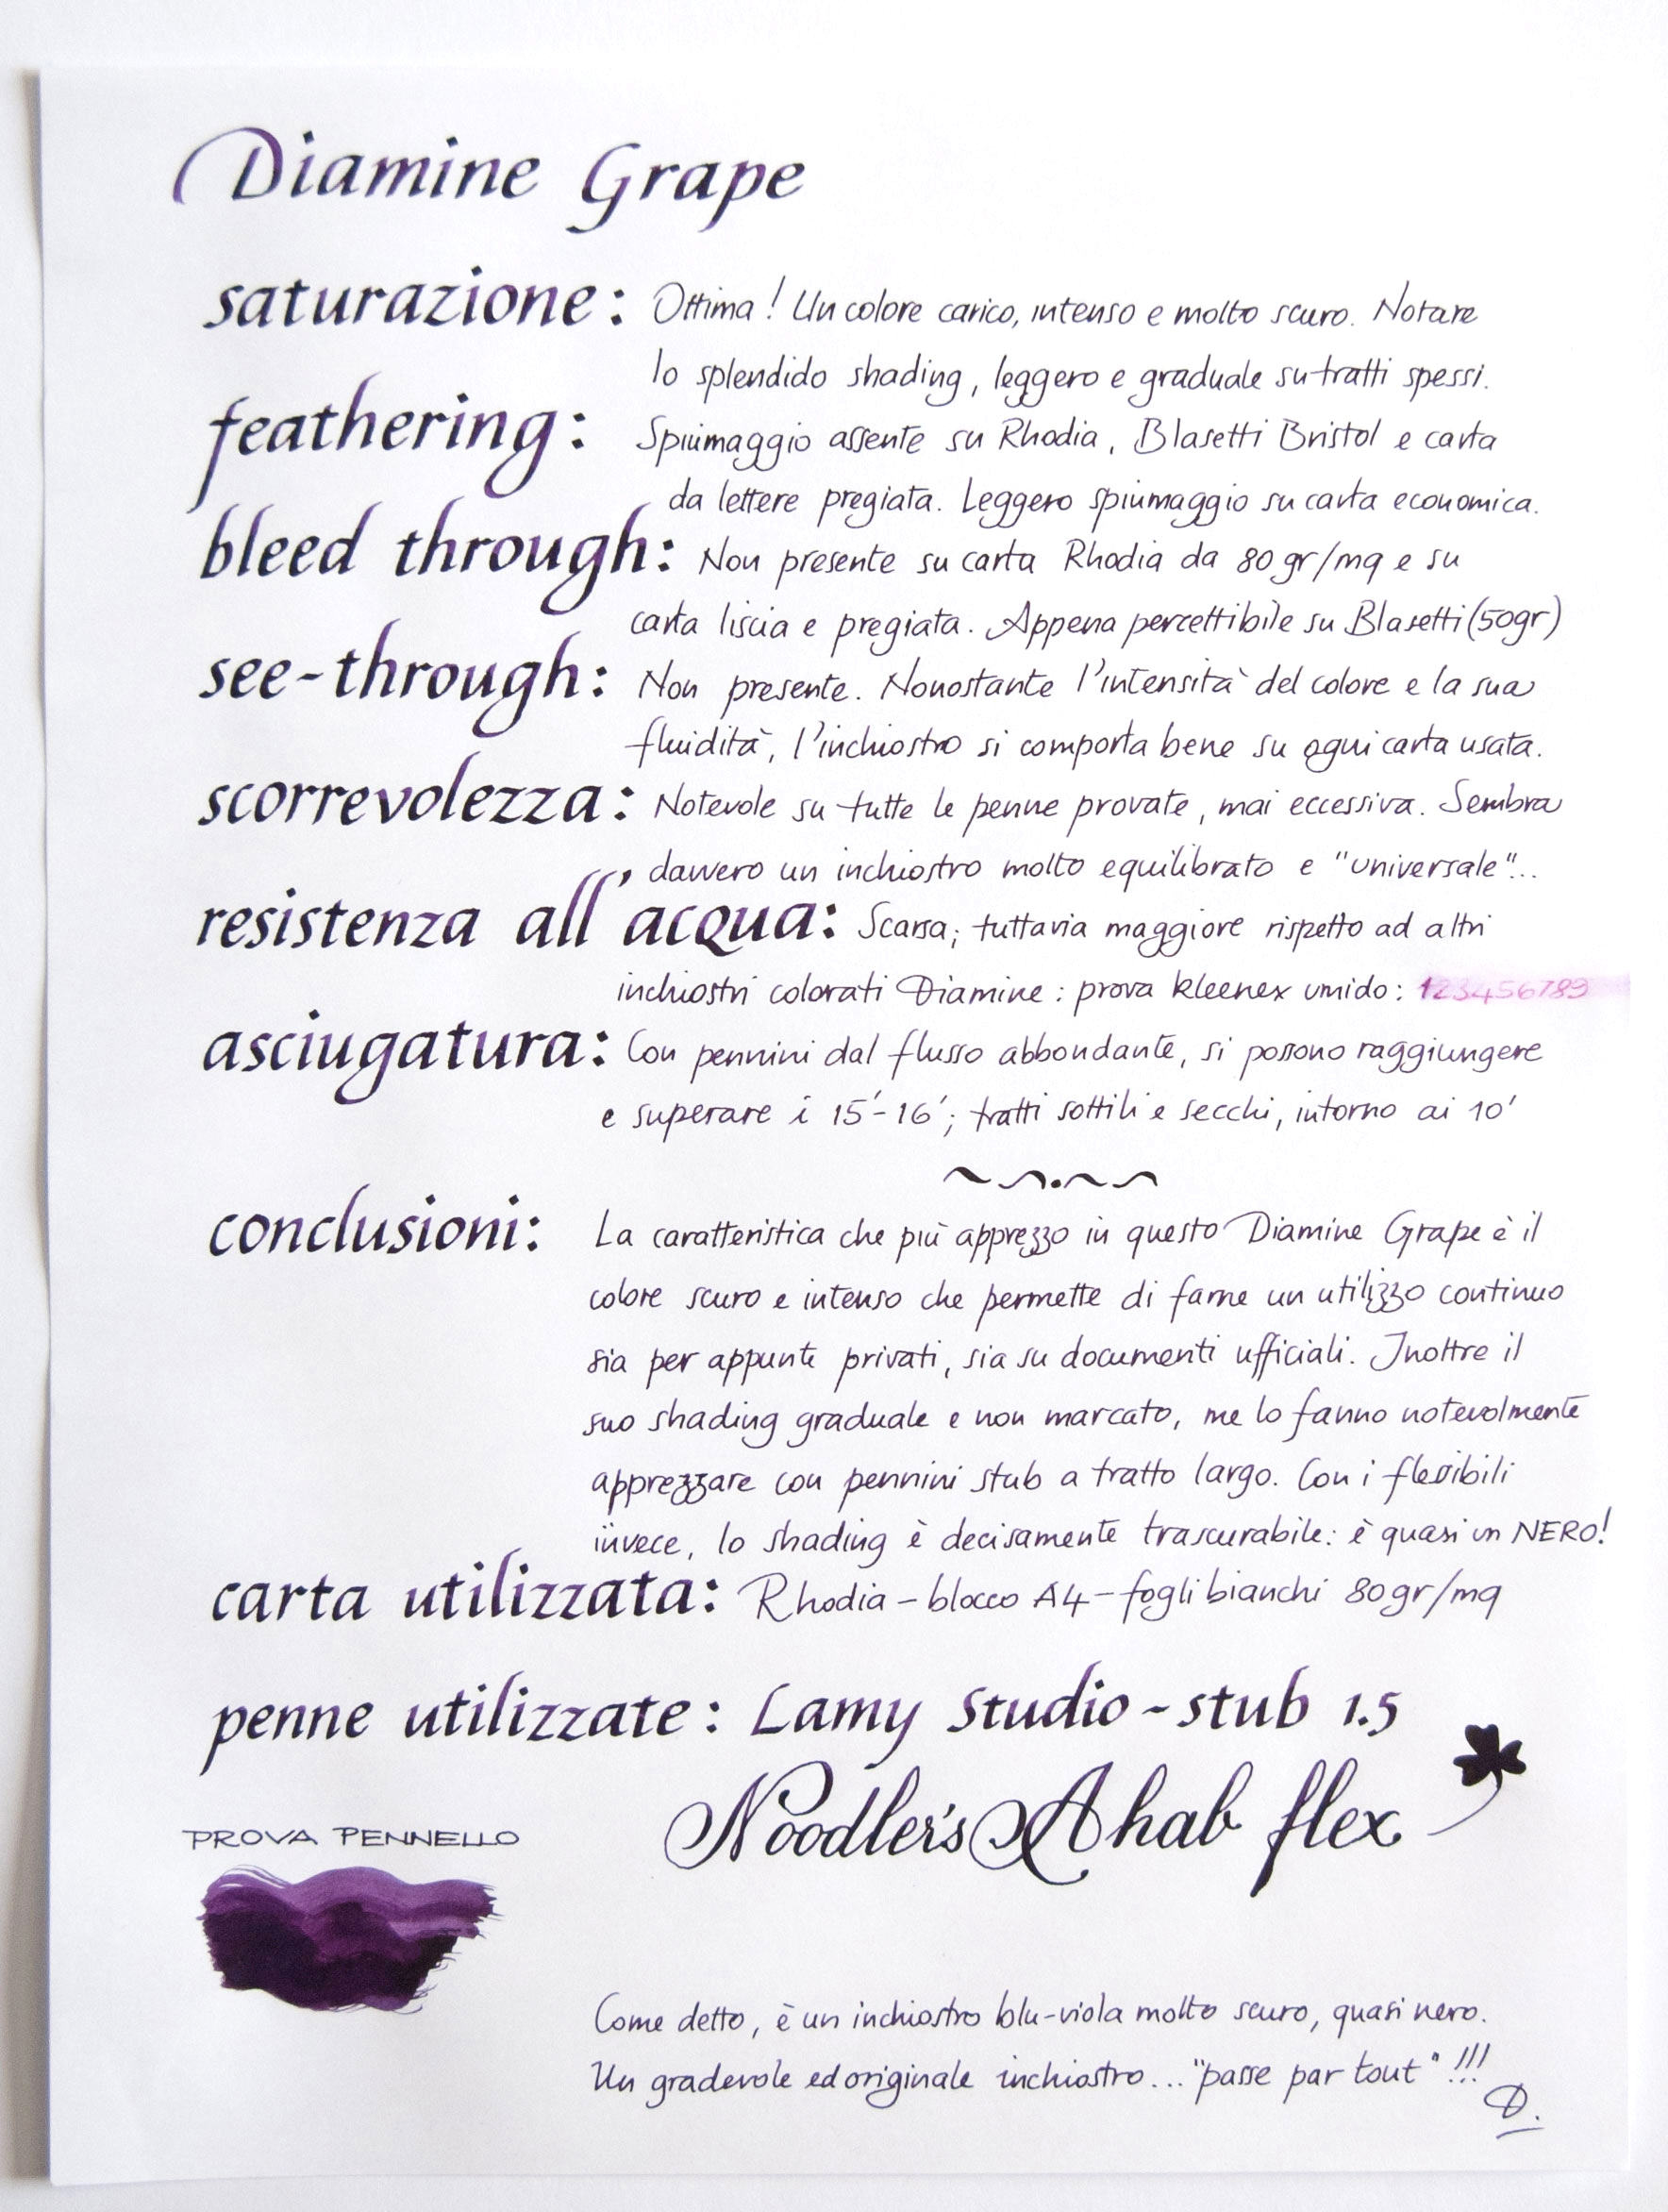 Diamine Grape
saturazione: Ottima! Un colore carico, intenso e molto scuro. Notare
lo splendido shading, leggero e graduale su tratti spessi.
feathering: Spiumaggio assente su Rhodia, Blasetti Bristol e carta
da lettere pregiata. Leggero spiumaggio su carta economica.
bleed through: Non presente su carta Rhodia da 80 gr/mq e su
carta liscia e pregiata. Appena percettibile su Blasetti (50gr)
see-through: Non presente. Nonostante l'intensità del colore e la sua
fluidità, l'inchiostro si comporta bene su ogni carta usata.
scorrevolezza: Notevole su tutte le penne provate, mai eccessiva. Sembra
davvero un inchiostro molto equilibrato e "universale"...
resistenza all'acqua: Scarsa; tuttavia maggiore rispetto ad altri
inchiostri colorati Diamine: prova kleenex umido: 123456789
asciugatura: Con pennini dal flusso abbondante, si possono raggiungere
e superare i 15'-16'; tratti sottili e secchi, intorno ai 10'
conclusioni: La caratteristica che più apprezzo in questo Diamine Grape è il
colore scuro e intenso che permette di farne un utilizzo continuo
sia per appunti privati, sia su documenti ufficiali. Inoltre il
suo shading graduale e non marcato, me lo fanno notevolmente
apprezzare con pennini stub a tratto largo. Con i flessibili
invece, lo shading è decisamente trascurabile: è quasi un NERO!
carta utilizzata: Rhodia - blocco A4 - fogli bianchi 80gr/mq
penne utilizzate: Lamy Studio - stub 1.5
Noodler's Ahab flex
PROVA PENNELLO
Come detto, è un inchiostro blu-viola molto scuro, quasi nero.
Un gradevole ed originale inchiostro... "passe par tout" !!!
D.